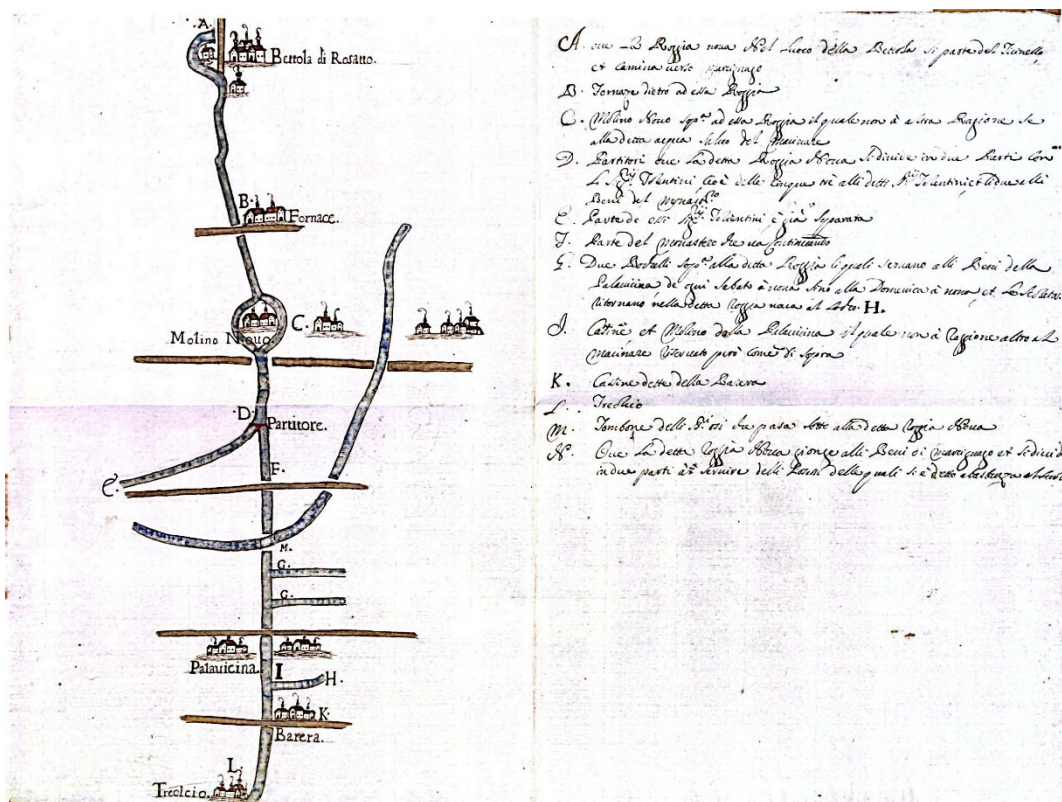 A.
Bettola di Rosatto.
B.
Fornace.
C.
Molino Nouo.
D.
Partitore.
F.
E.
M.
G.
G.
Palauicina.
I
H.
K.
Barera.
L.
Treolcio.
A. oue La Roggia noua Nel Luoco della Bettola si parte del Ticinello
et Camina uerso
B. Fornaze dietro ad essa Roggia
C. Molino Nouo sop.ª ad essa Roggia il quale non à altra Ragione se
alla detta acqua saluo del Macinare
D. Partitori oue la detta Roggia Noua si diuide in due Parti con
Li Tolentini Cioè delle Cinque trè alli detti Tolentini et li due alli
Beni del
E. Parte de essi Tolentini è già separata
F. Parte del
G. Due Bochelli sop.ª alla detta Roggia li quali seruano alli Beni della
Palauicina de ogni Sabato à nona sino alla Domenica à nona et
ritornano nella detta Roggia H.
I. et Molino della Palauicina il quale non à Raggione altro al
Macinare però Come di Sopra
K. Casine dette della Barera
L. Treolcio
M. Tombone delli che passa sotto alla detta Roggia Noua
N. Oue La detta Roggia Noua gionge alli Beni di et si diuide
in due parti seruire delli delle quali si è detto